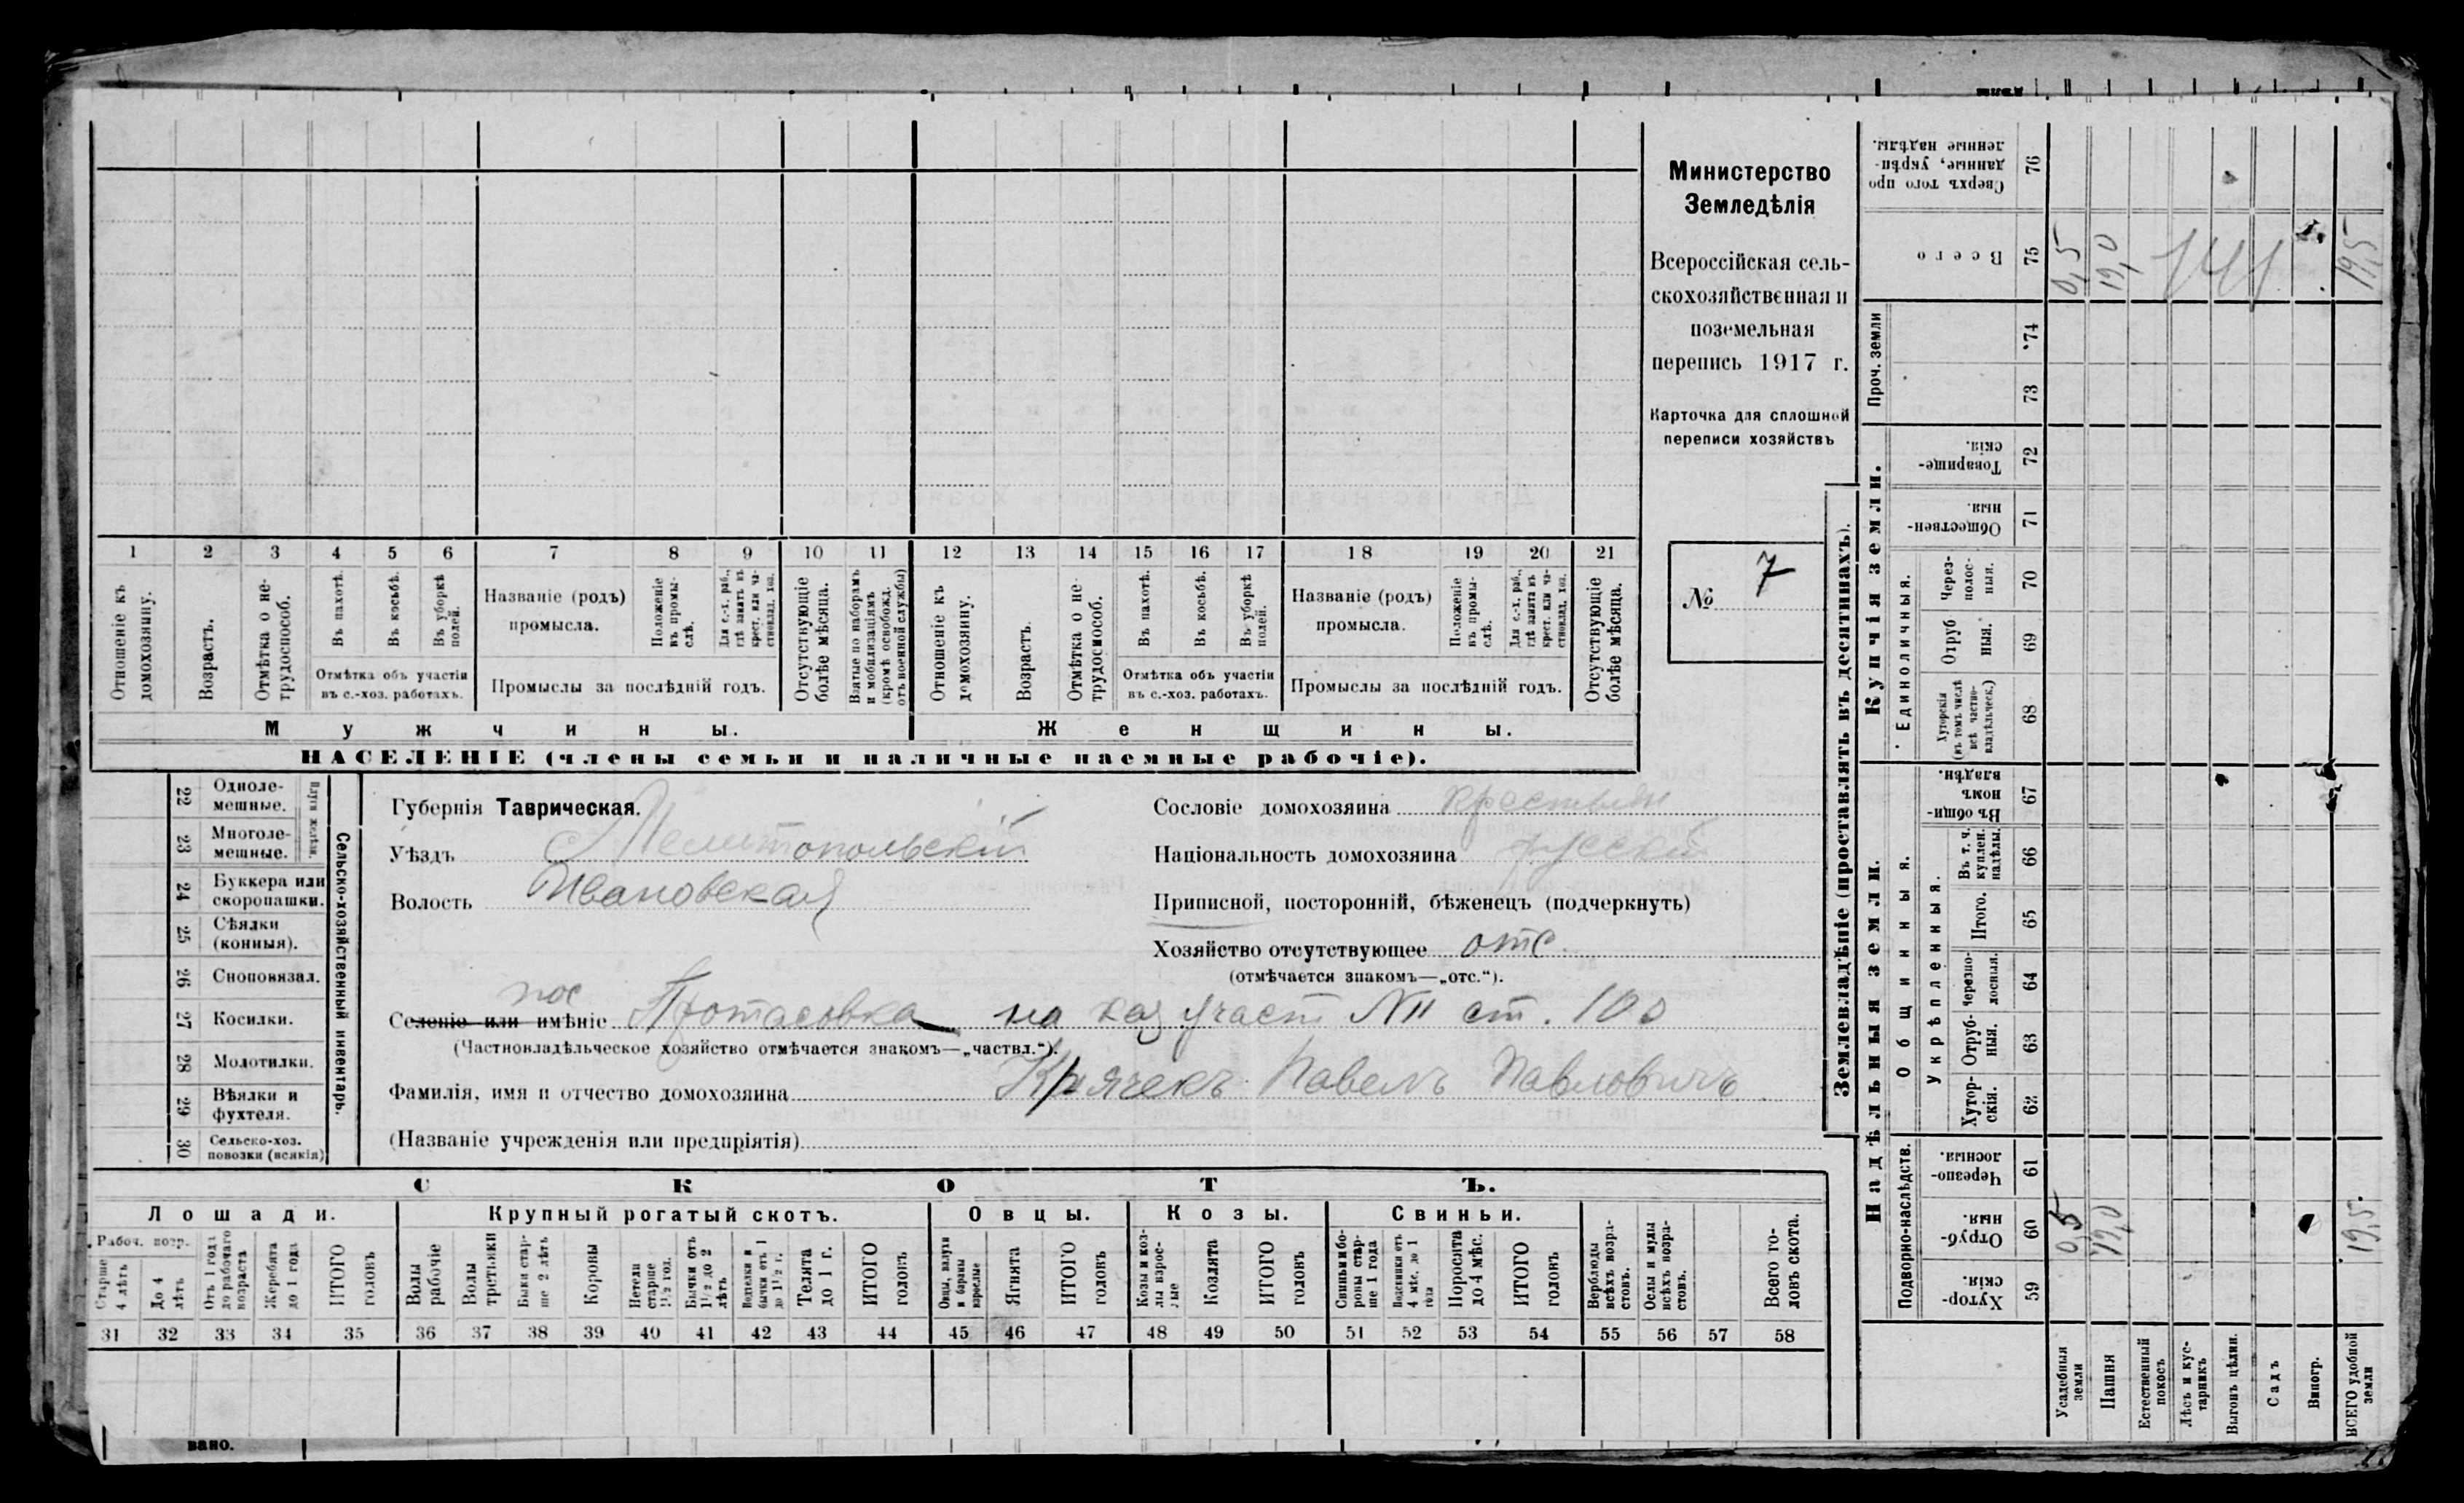 Министерство
Земледѣлія
Всероссійская сель-
скохозяйственная и
поземельная
перепись 1917 г.
Карточка для сплошной
переписи хозяйствъ
№ 7
1 2 3 4 5 6 7 8 9 10 11 12 13 14 15 16 17 18 19 20 21
Отношеніе къ домохозяину.
Возрастъ.
Отмѣтка о не-трудоспособ.
Въ пахотѣ.
Въ косьбѣ.
Въ уборкѣ полей.
Отмѣтка объ участіи
въ с.-хоз. работахъ.
Названіе (родъ)
промысла.
Положеніе въ промы-слѣ.
Для с.-х. раб., гдѣ занятъ въ крест. или ча-стновлад. хоз.
Промыслы за послѣдній годъ.
Отсутствующіе болѣе мѣсяца.
Взятые по наборамъ и мобилизаціямъ (кромѣ освобожд. отъ военной службы)
Отношеніе къ домохозяину.
Возрастъ.
Отмѣтка о не-трудоспособ.
Въ пахотѣ.
Въ косьбѣ.
Въ уборкѣ полей.
Отмѣтка объ участіи
въ с.-хоз. работахъ.
Названіе (родъ)
промысла.
Положеніе въ промы-слѣ.
Для с.-х. раб., гдѣ занята въ крест. или ча-стновлад. хоз.
Промыслы за послѣдній годъ.
Отсутствующіе болѣе мѣсяца.
Мужчины.
Женщины.
НАСЕЛЕНІЕ (члены семьи и наличные наемные рабочіе).
22 Одноле-мешные.
23 Многоле-мешные.
Плуги желѣзн.
24 Буккера или скоропашки.
25 Сѣялки (конныя).
26 Сноповязал.
27 Косилки.
28 Молотилки.
29 Вѣялки и фухтеля.
30 Сельско-хоз. повозки (всякія)
Сельско-хозяйственный инвентарь.
Губернія Таврическая.
Уѣздъ Мелитопольскій
Волость Ивановская
Сословіе домохозяина крестьян
Національность домохозяина русскій
Приписной, посторонній, бѣженецъ (подчеркнуть)
Хозяйство отсутствующее отс.
(отмѣчается знакомъ—„отс.“).
пос
Селеніе или имѣніе Протасовка на каз участ N11 ст. 100
(Частновладѣльческое хозяйство отмѣчается знакомъ—„частвл.“).
Фамилія, имя и отчество домохозяина Крячекъ Павелъ Павловичъ
(Названіе учрежденія или предпріятія)
СКОТЪ.
Лошади.
Крупный рогатый скотъ.
Овцы.
Козы.
Свиньи.
Рабоч. возр.
Старше 4 лѣтъ
До 4 лѣтъ
Отъ 1 года до рабочаго возраста
Жеребята до 1 года
ИТОГО головъ
Волы рабочіе
Волы третьяки
Быки стар-ше 2 лѣтъ
Коровы
Нетели старше 1½ год.
Бычки отъ 1½ до 2 лѣтъ
Телки и бычки отъ 1 до 1½ г.
Телята до 1 г.
ИТОГО головъ
Овцы, валухи и бараны взрослые
Ягнята
ИТОГО головъ
Козы и коз-лы взрос-лые
Козлята
ИТОГО головъ
Свиньи и бо-ровы стар-ше 1 года
Подсвинки отъ 4 мѣс. до 1 года
Поросята до 4 мѣс.
ИТОГО головъ
Верблюды всѣхъ возра-стовъ.
Ослы и мулы всѣхъ возра-стовъ.
Всего го-ловъ скота.
31 32 33 34 35 36 37 38 39 40 41 42 43 44 45 46 47 48 49 50 51 52 53 54 55 56 57 58
Землевладѣніе (проставлять въ десятинахъ).
Надѣльныя земли.
Купчія земли.
Проч. земли
Подворно-наслѣдств.
Общинныя.
Укрѣпленныя.
Единоличныя.
Сверхъ того про-данные, укрѣп-ленные надѣлы. 76
Всего 75 0,5 19,0 19,5
74
73
Товарище-скія. 72
Обществен-ныя. 71
Через-полос-ныя. 70
Отруб-ныя. 69
Хуторскія (въ томъ числѣ всѣ частно-владѣльческ.) 68
Въ общин-номъ владѣн. 67
Въ т. ч. куплен. надѣлы. 66
Итого. 65
Черезпо-лосныя. 64
Отруб-ныя. 63
Хутор-скія. 62
Черезпо-лосныя. 61
Отруб-ныя. 60 0,5 19,0 19,5.
Хутор-скія. 59
Усадебныя земли
Пашня
Естественный покосъ
Лѣсъ и кус-тарникъ
Выгонъ цѣлин.
Садъ
Виногр.
ВСЕГО удобной земли
вано.